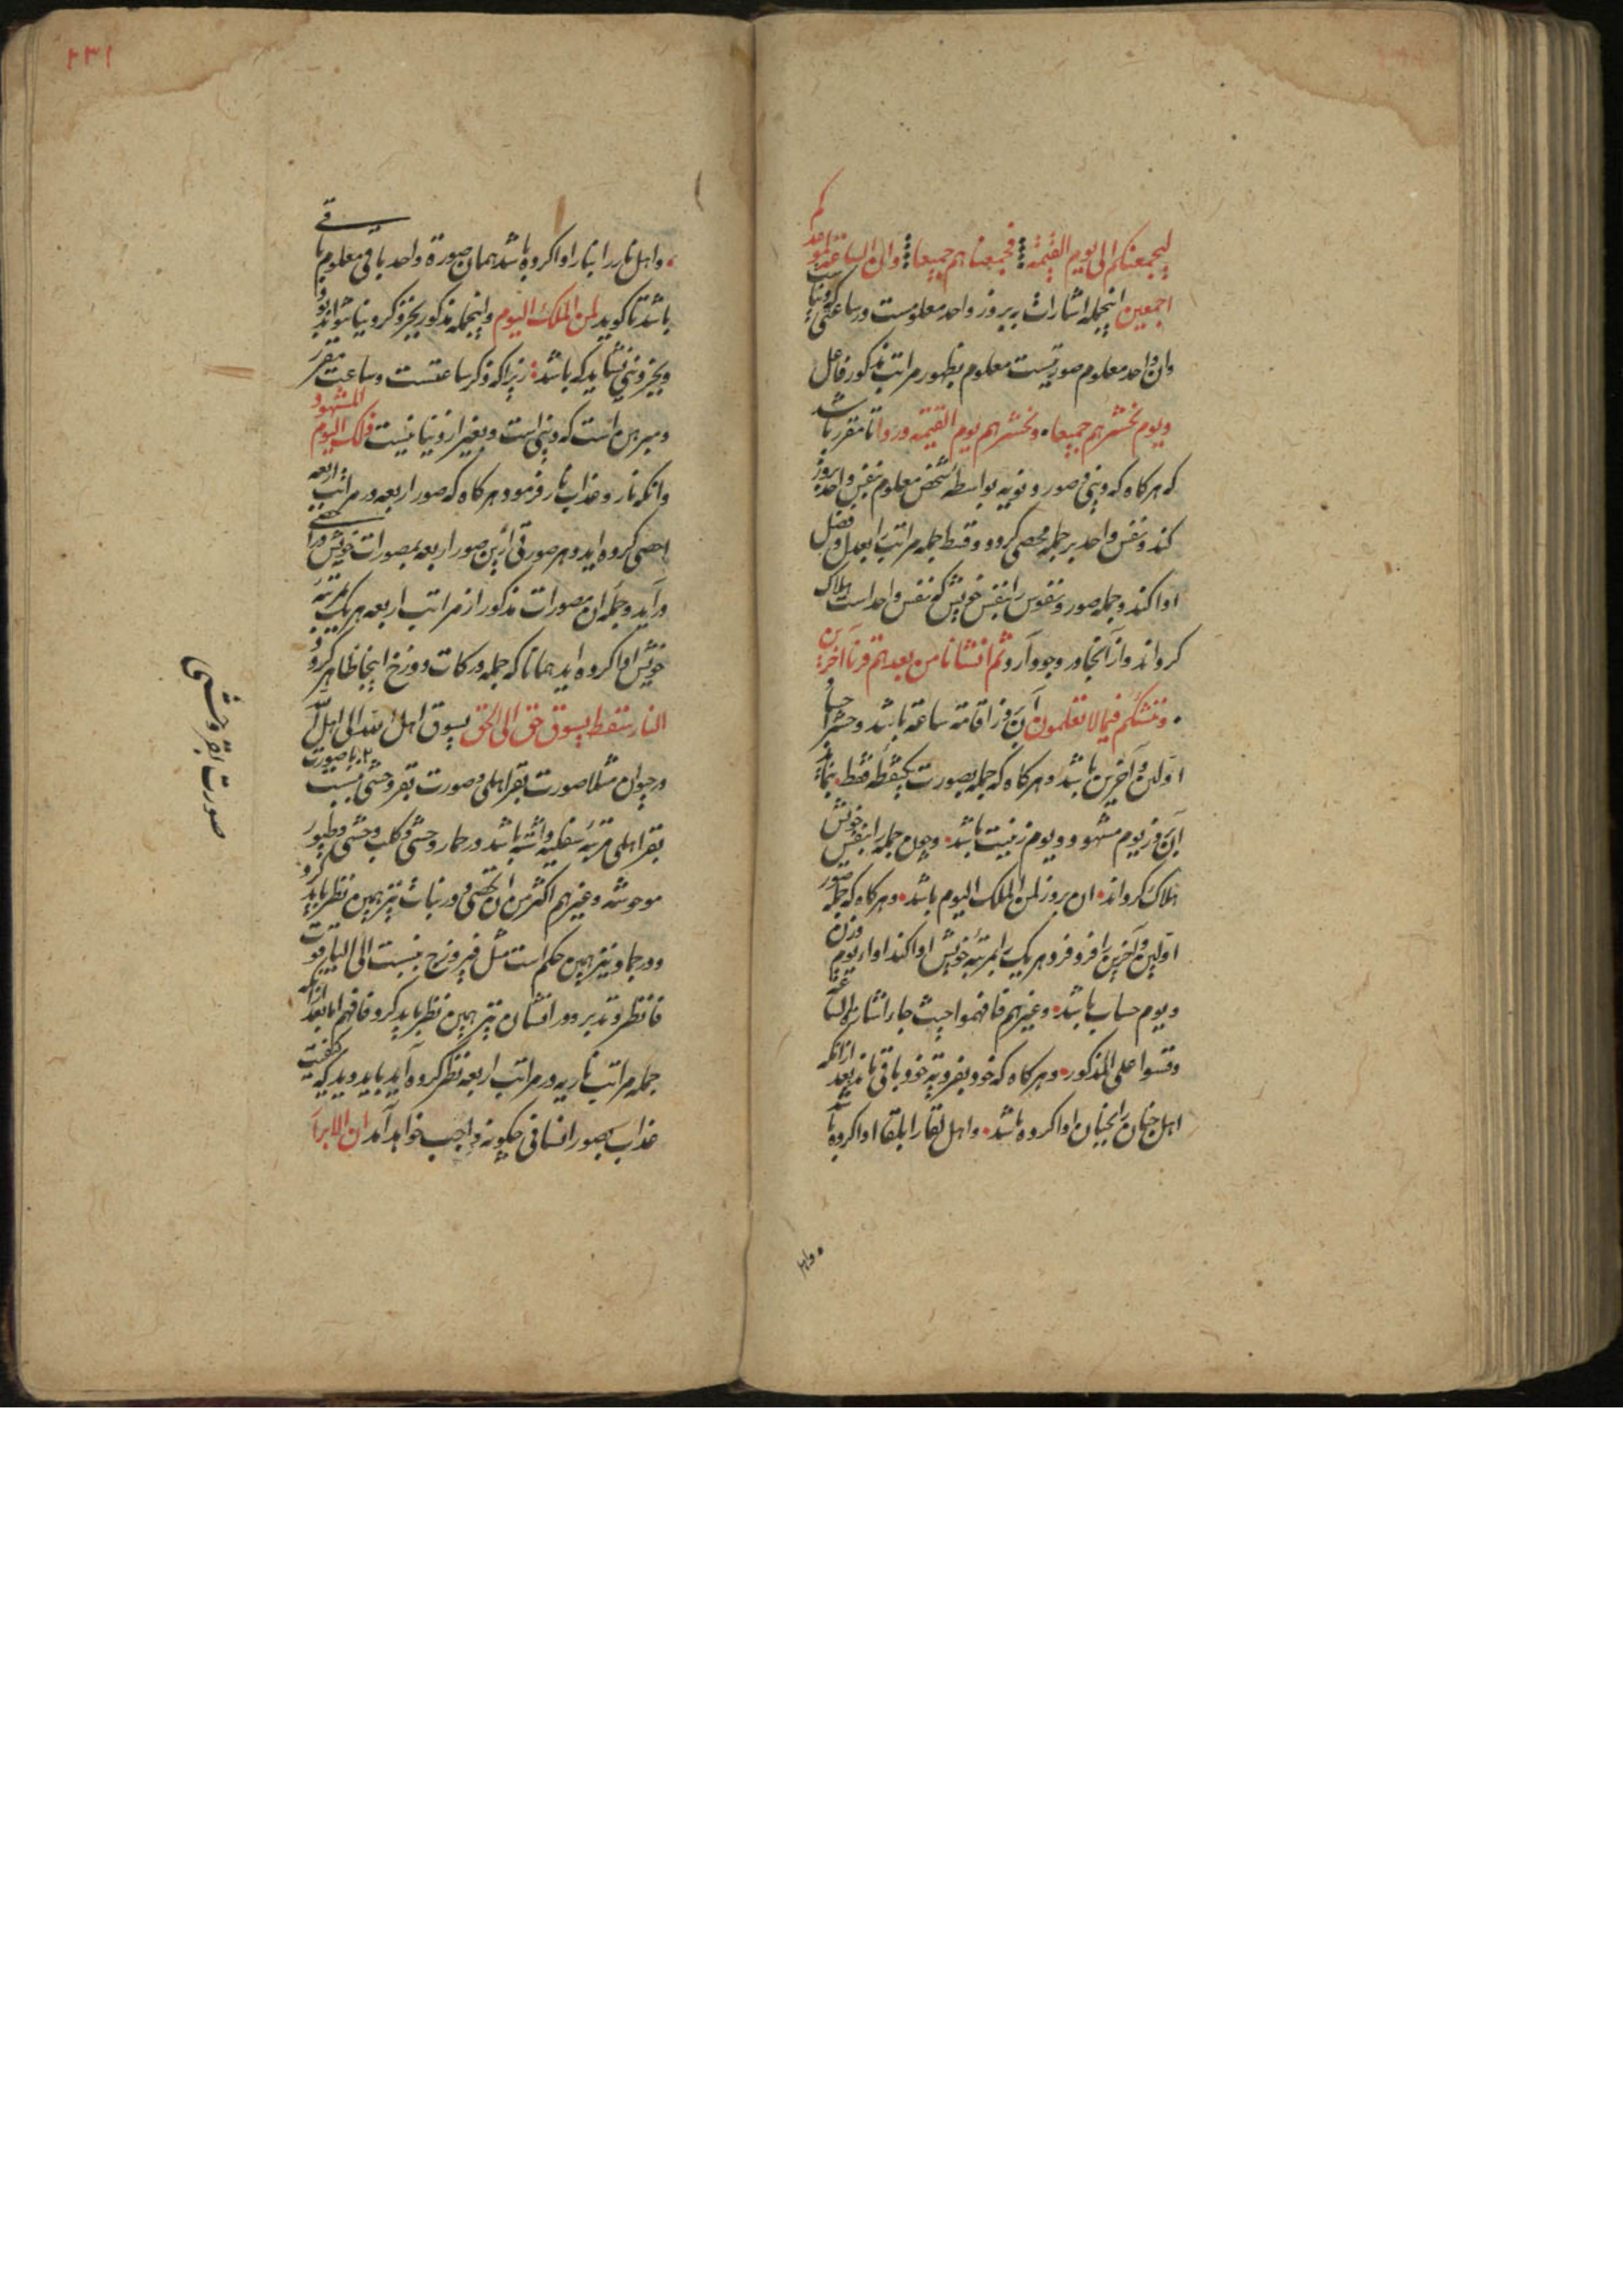 لیجمعنکم الی یوم القیمه فجمعناهم جمیعا وان الساعة
اجمعین اینجمله اشارات بر روز واحد معلومست وساعتی
وان واحد معلوم صورتیست معلوم بظهور مراتب مذکور فاعل
ویوم نحشرهم جمیعا ونحشرهم یوم القیمه ورواتا مقرر باشد
که هر کاه که وصور بواسطه شخص معلوم نفس واحد بروز
کند ونفس واحد بر جمله محصی کردد وقسط جمله مراتب بعدل وفضل
ادا کند وجمله صور ونفوس را بنفس خویش که نفس واحد است هلاک
کرداند واز آنجا در وجود آرد ثم انشانا من بعدهم قرنا آخرین
وننشئکم فیما لا تعلمون آن روز اقامة ساعة باشد وحشر
اولین وآخرین باشد وهر کاه که جمله بصورت یکنقطه فقط
آن روز یوم مشهود ویوم زینت باشد وچون جمله را بنفس خویش
هلاک کرداند ان روز لمن الملک الیوم باشد وهر کاه که جمله صور
اولین وآخرین را فرد فرد هر یک را بمرتبه خویش ادا کند
ویوم حساب باشد وغیرهم فافهموا حیث جاء اشاره
وقسوا علی المذکور وهر کاه که خود بفردیته خود باقی ماند بعد ازانکه
اهل جنان را بجنان ادا کرده باشد واهل لقا را بلقا ادا کرده
واهل
۲۳۱
واهل نار را بنار ادا کرده باشد همان صورة واحد باقی معلوم باقی
باشد تا کوید لمن الملک الیوم واینجمله مذکور بجز ذکر دنیا نتواند بود
وبجز دنیی نشاید که باشد زیرا که ذکر ساعتست وساعت مقرر
ومبرهن است که دنیی است وبغیر از دنیا نیست ذلک الیوم المشهود
وانکه نار وعذاب نار فرمود هر کاه که صور اربعه در مراتب اربعه
احصی کرده اید وهر صورتی ازین صور اربعه بمصورات خویش
درآید وجمله ان مصورات مذکور از مراتب اربعه هر یک بمرتبه
خویش ادا کرده اید همانا که جمله درکات دوزخ اینجا ظاهر کردد
النار سقط یسوق حق الی الحق یسوق اهل الله الی اهل
در حیوان مثلا صورت بقر اهلی وصورت بقر وحشی نسبت با صورت
بقر اهلی مرتبه سفلیه داشته باشد ودر حمار وحشی وکلب وحشی وطیور
موحوشه وغیرهم اکثر من ان تحصی ودر نبات نیز همین نظر باید کرد
ودر جماد نیز همین حکم است مثل فیروزج بنسبت الی الیاقوت
فانظر وتدبر ودر انسان نیز همین نظر باید کرد فافهم اما بعد ازانکه
جمله مراتب ناریه در مراتب اربعه نظر کرده آید باید دید که کیفیت
عذاب بصور انسانی چکونه واجب خواهد آمد ان الابرا
صورت بقر وحشی